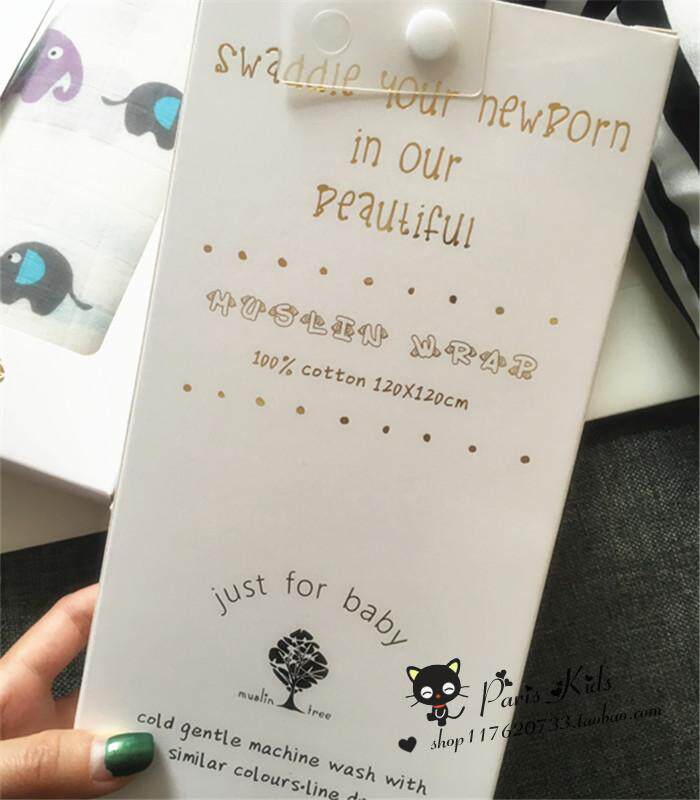 swaddle your newborn
in our
Beautiful
MUSLIN WRAP
100% cotton 120X120cm
just for baby
muslin tree
cold gentle machine wash with
similar colours·line
Paris Kids
shop117620733.taobao.com